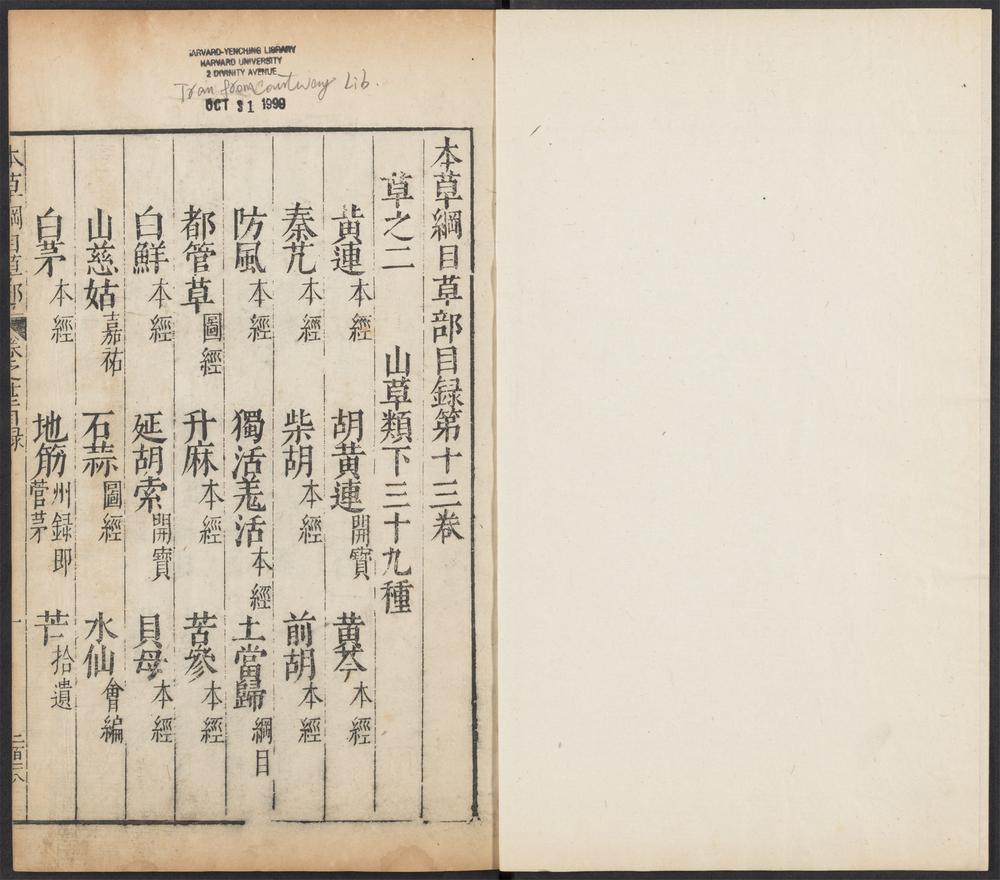 HARVARD-YENCHING LIBRARY
HARVARD UNIVERSITY
2 DIVINITY AVENUE
Tran from Countway Lib.
OCT 31 1990
本草綱目草部目録第十三卷
草之二 山草類下三十九種
黄連本經 胡黄連開寶 黄芩本經
秦艽本經 柴胡本經 前胡本經
防風本經 獨活羗活本經 土當歸綱目
都管草圖經 升麻本經 苦參本經
白鮮本經 延胡索開寶 貝母本經
山慈姑嘉祐 石蒜圖經 水仙會編
白茅本經 地筋州録即菅茅 芒拾遺
本草綱目草部 目録 一